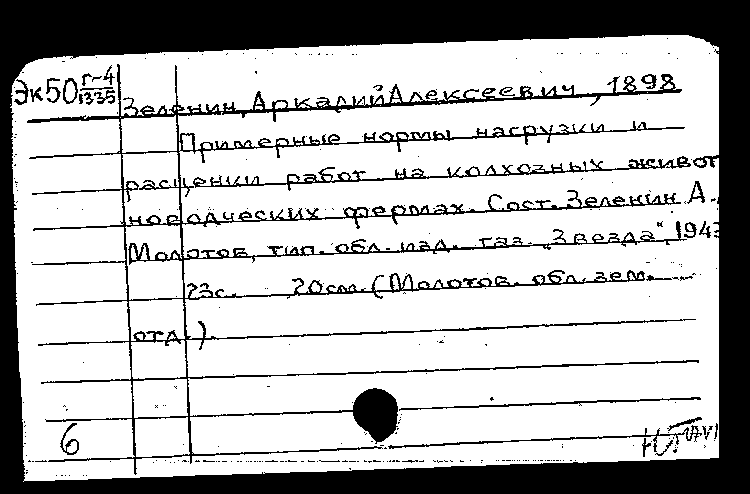 Эк50 г-4
1335
Зеленин, Аркадий Алексеевич, 1898
Примерные нормы нагрузки и
расценки работ на колхозных живот
новодческих фермах. Сост. Зеленин А.
Молотов, тип. обл. изд. газ. "Звезда", 1943
23с. 20см. (Молотов. обл. зем.
отд.)
6